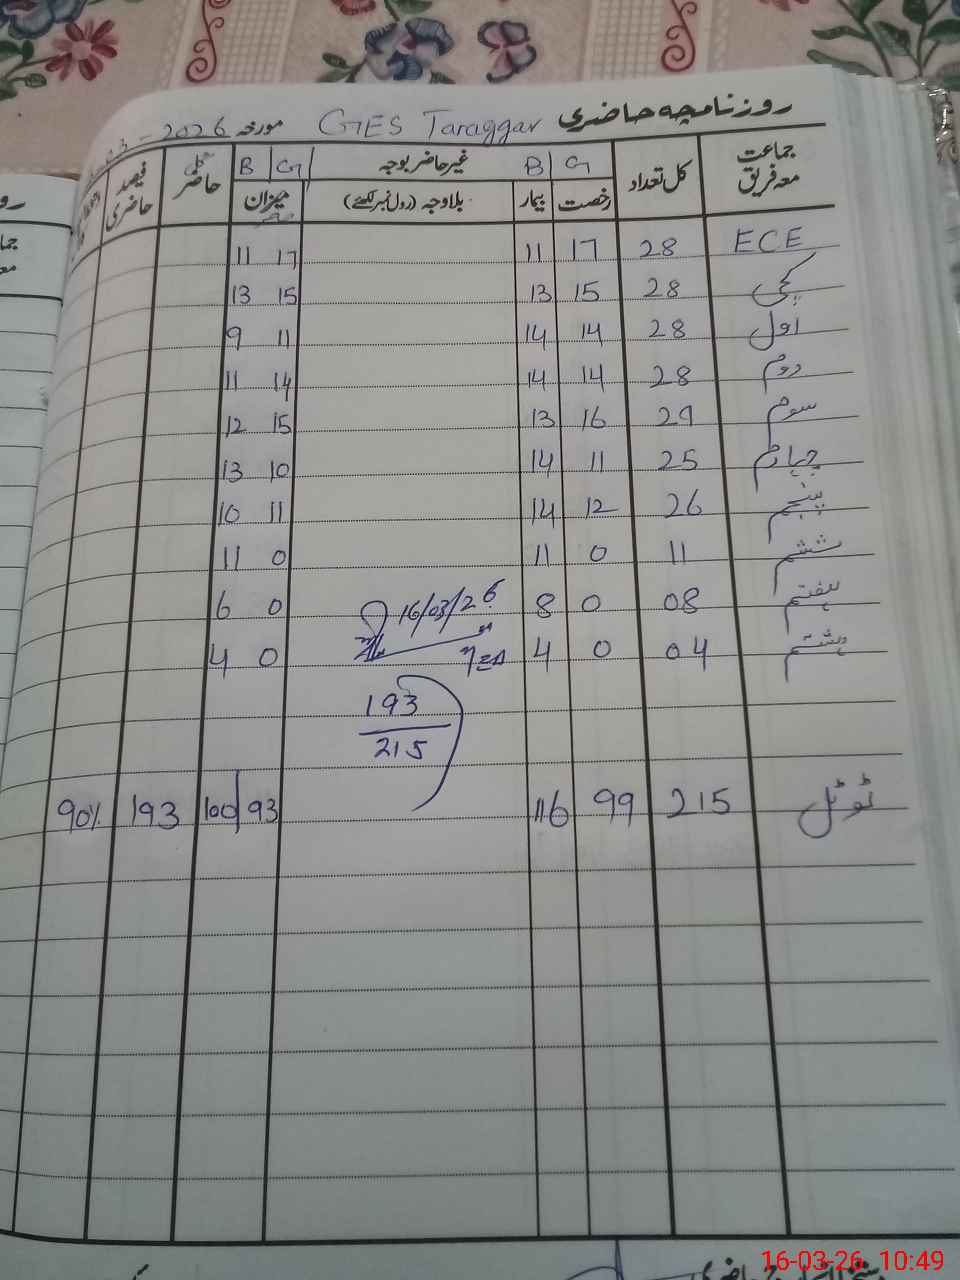 روزنامچہ حاضری GES Taraggar مورخہ 03-2026
جماعت معہ فریق کل تعداد G B غیر حاضر بوجہ G B کل حاضر فیصد حاضری
رخصت بیمار بلاوجہ (رول نمبر لکھئے) میزان
ECE 28 17 11 17 11
کچی 28 15 13 15 13
اول 28 14 14 11 9
دوم 28 14 14 14 11
سوم 29 16 13 15 12
چہارم 25 11 14 10 13
پنجم 26 12 14 11 10
ششم 11 0 11 0 11
ہفتم 08 0 8 0 6
16/03/26
ہشتم 04 0 4 0 4
193
215
ٹوٹل 215 99 116 93 100 193 90%
16-03-26 10:49